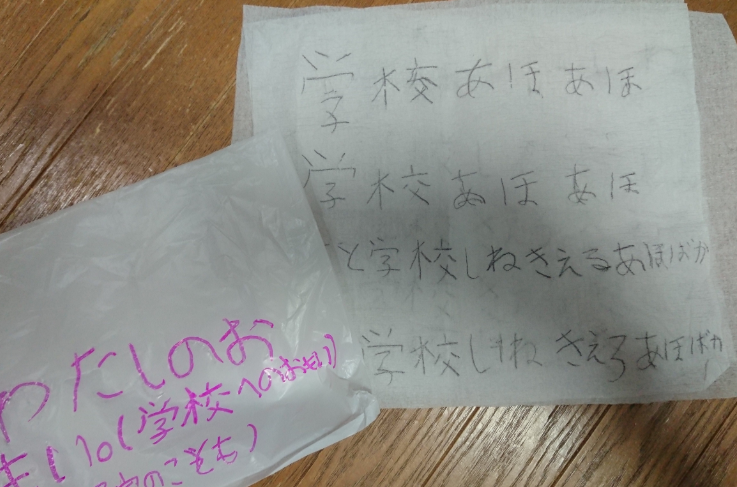 学校あほあほ
学校あほあほ
と学校しねきえるあほばか
学校しね きえろあほばか
わたしのお
もい。(学校へのおもい)
のこもち)